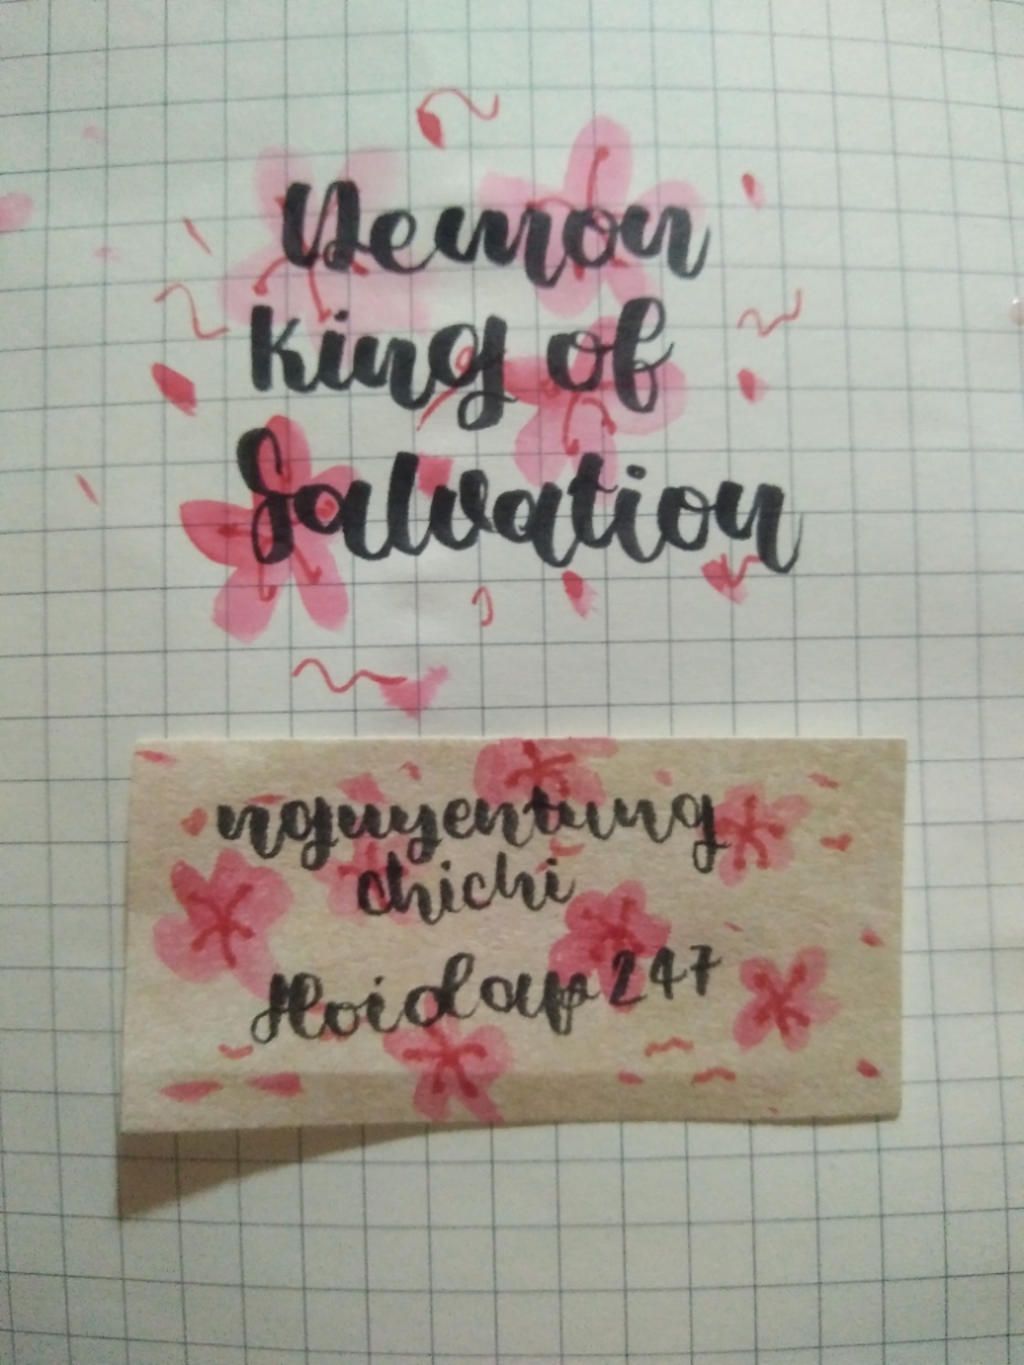 Demon
King of
Salvation
nguyentung
chichi
Hoidap 247